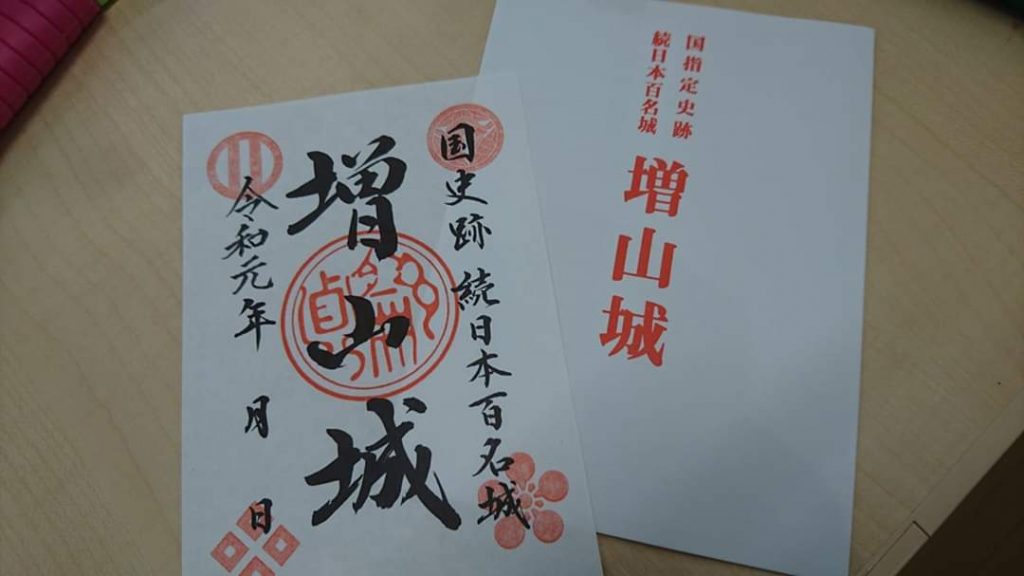 国史跡 続日本百名城
増山城
令和元年 月 日
国指定史跡
続日本百名城
増山城